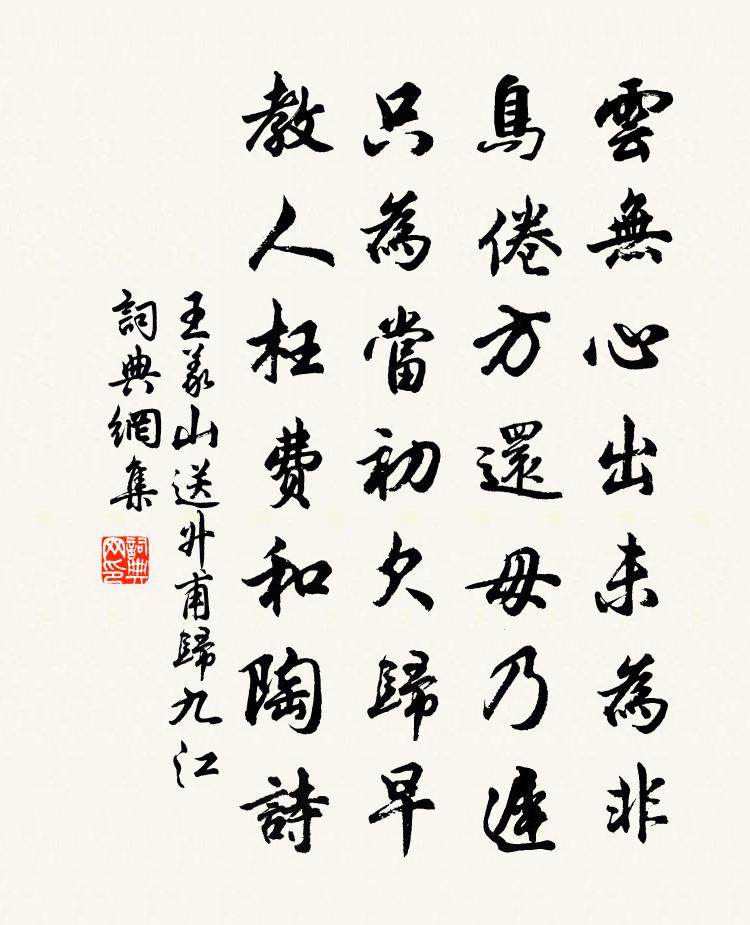 雲無心出未為非
鳥倦方還毋乃遲
只為當初欠歸早
教人枉費和陶詩
王義山送升甫歸九江
詞典網集
詞典
网印